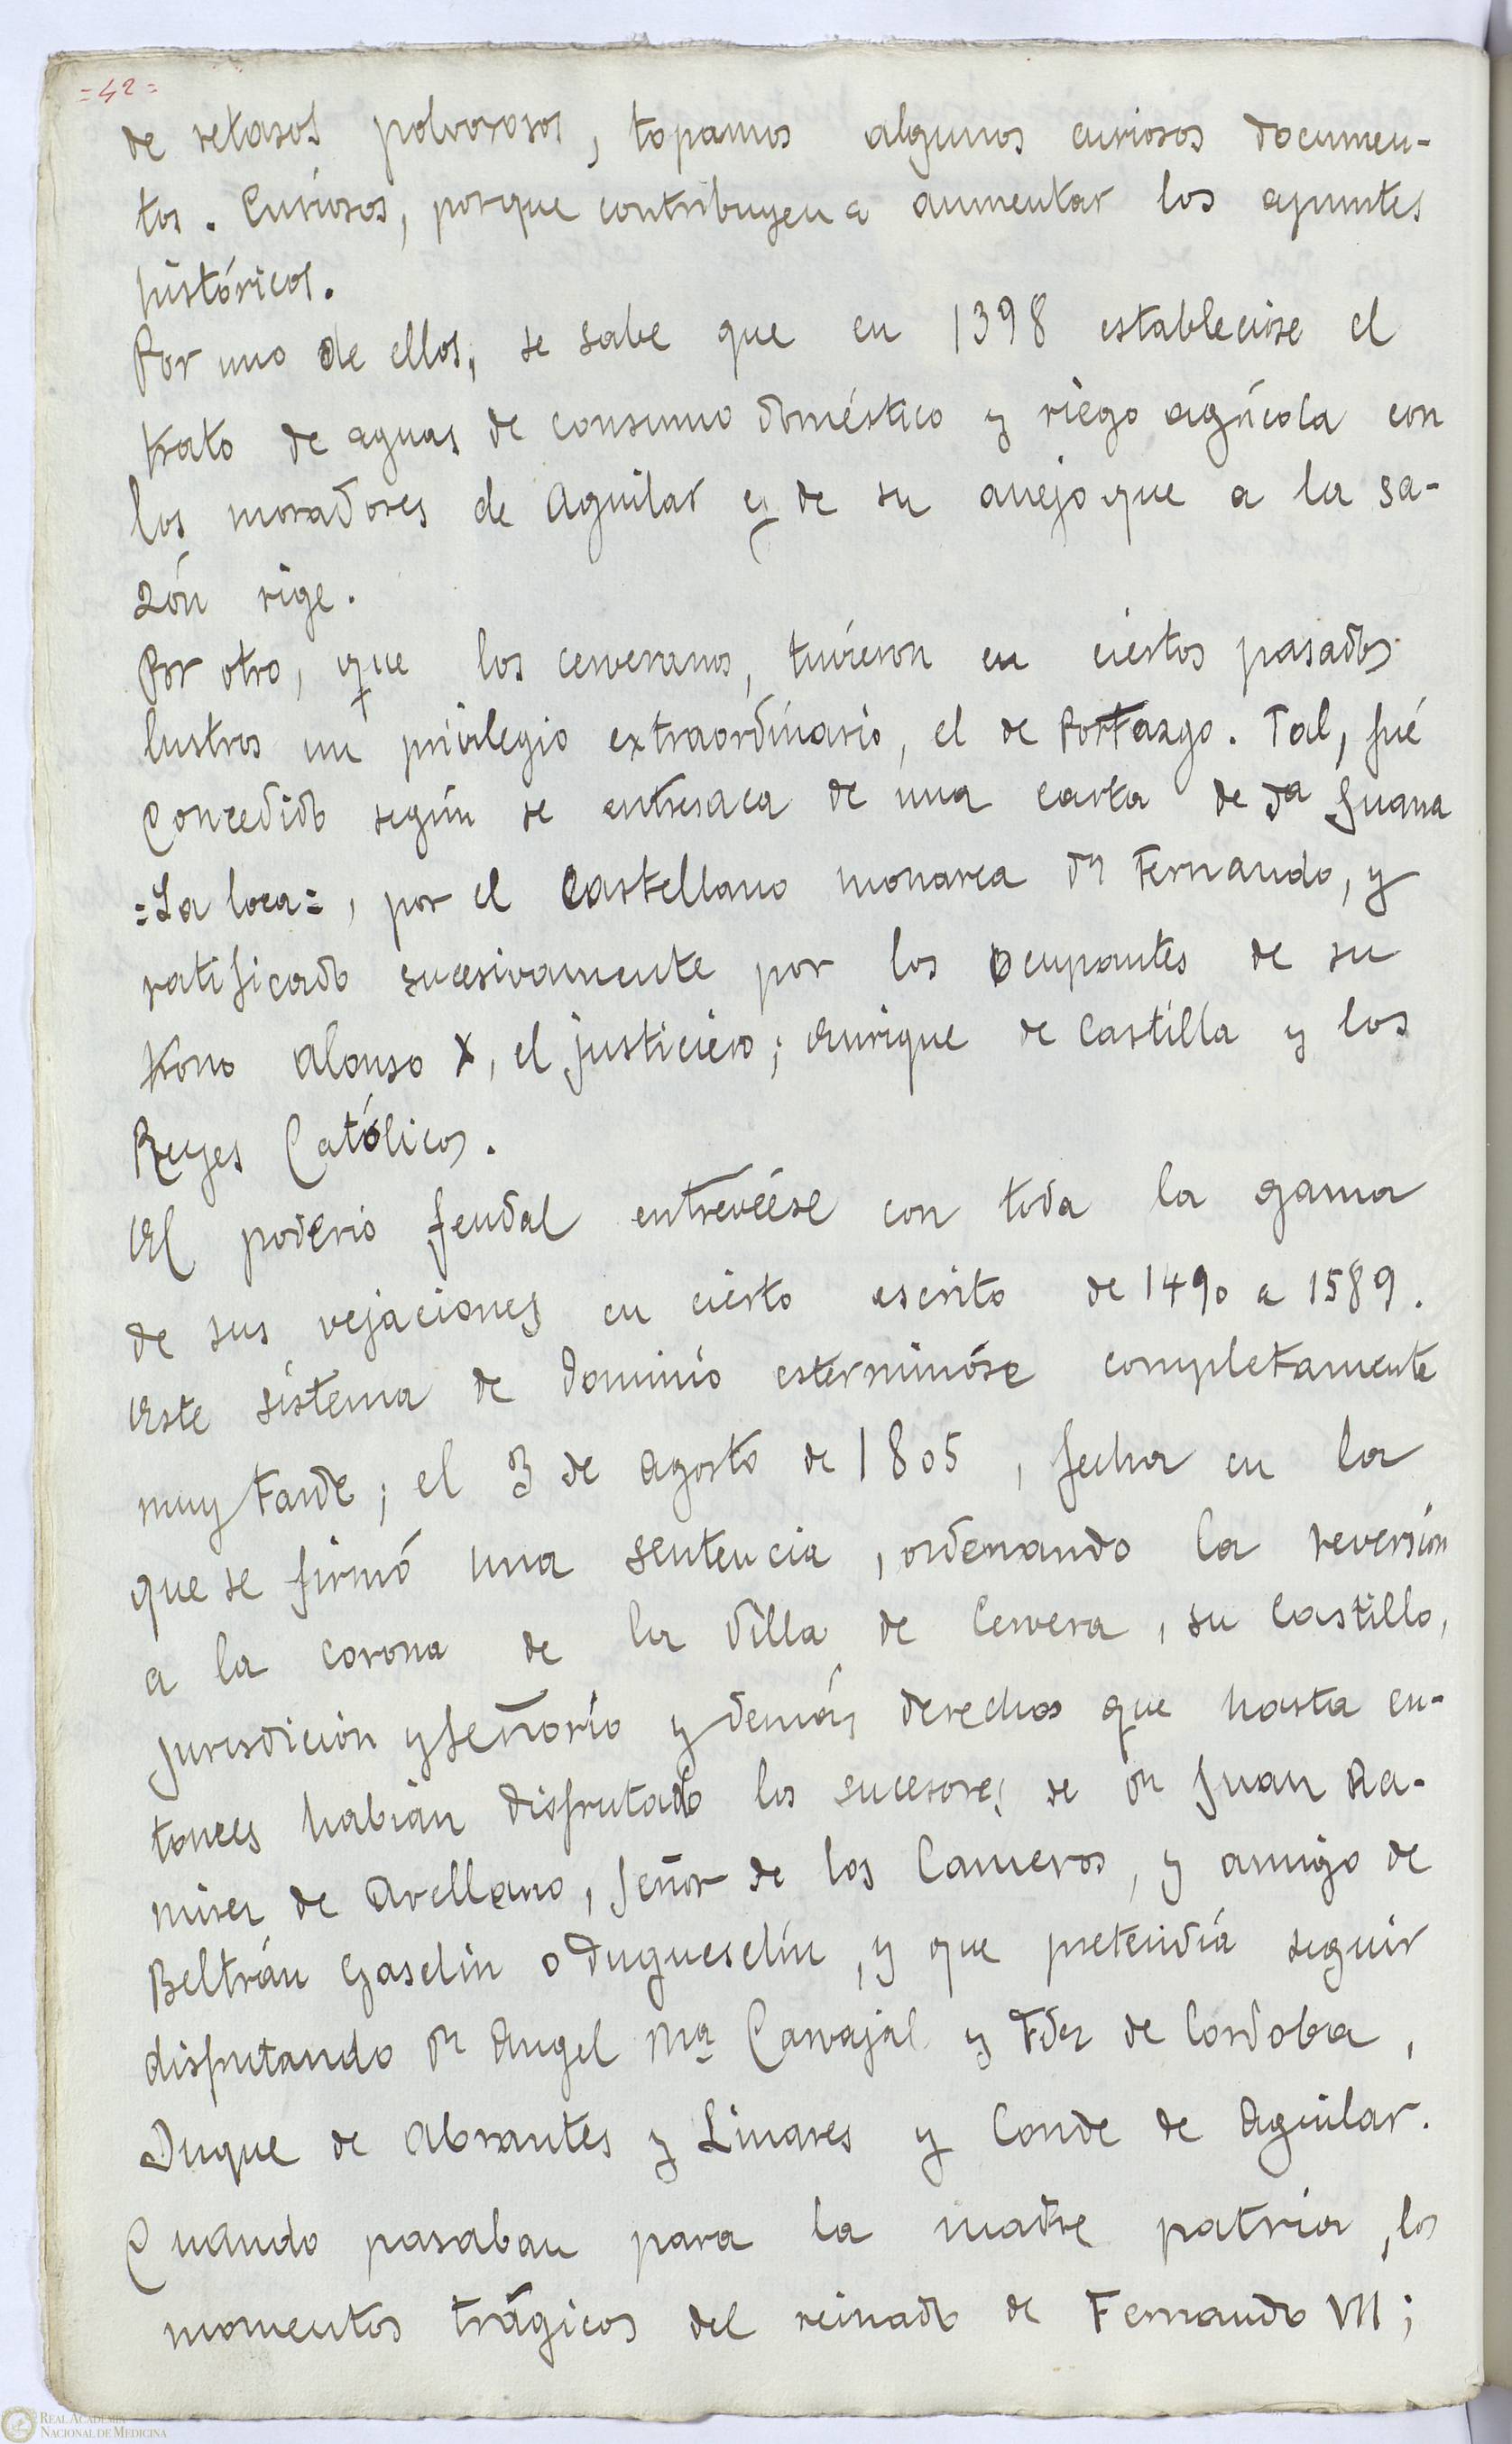 =42=
de retasos polvorosos, topamos algunos curiosos documen-
tos. Curiosos, porque contribuyen a aumentar los apuntes
históricos.
Por uno de ellos, se sabe que en 1398 establecióse el
trato de aguas de consumo doméstico y riego agrícola con
los moradores de Aguilar y de su anejo que a la sa-
zón rige.
Por otro, que los cerveranos, tuvieron en ciertos pasados
lustros un privilegio extraordinario, el de Portazgo. Tal, fué
Concedido según se entresaca de una carta de Dª Juana
=La loca=, por el Castellano monarca Dn Fernando, y
ratificado sucesivamente por los ocupantes de su
trono Alonso X, el justiciero; Enrique de Castilla y los
Reyes Católicos.
El poderio feudal entrevéese con toda la gama
de sus vejaciones en cierto escrito de 1490 a 1589.
Este sistema de dominio esterminóse completamente
muy tarde; el 3 de Agosto de 1805, fecha en la
que se firmó una sentencia, ordenando la reversión
a la corona de la Villa de Cervera, su Castillo,
jurisdición y señorío y demás derechos que hasta en-
tonces habian disfrutado los sucesores de Dn Juan Ra-
mirez de Arellano, Señor de los Cameros, y amigo de
Beltrán Gasclin o Duguesclín, y que pretendía seguir
disfrutando Dn Angel Mª Carvajal y Fdez de Cordoba,
Duque de Abrantes y Linares y Conde de Aguilar.
Cuando pasaban para la madre patria, los
momentos trágicos del reinado de Fernando VII;
REAL ACADEMIA
NACIONAL DE MEDICINA